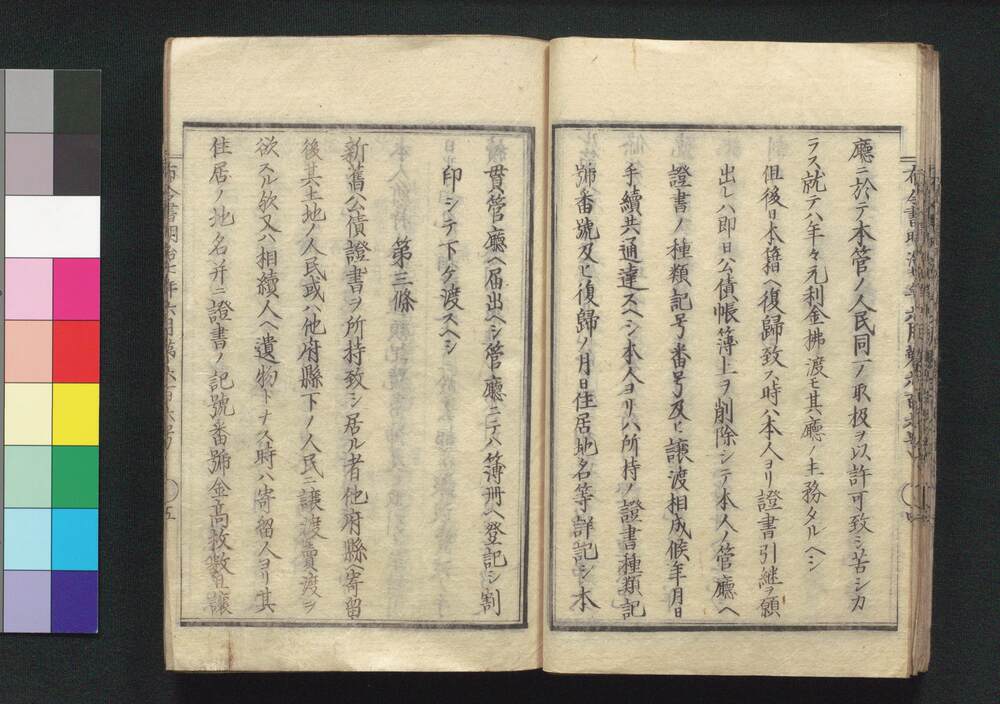 廳ニ於テ本管ノ人民同一ノ取扱ヲ以許可致シ苦シカ
ラス就テハ年々元利金拂渡モ其廳ノ主務タルヘシ
但後日本籍ヘ復歸致ス時ハ本人ヨリ證書引繼ヲ願
出レハ即日公債帳簿上ヲ削除シテ本人ノ管廳ヘ
證書ノ種類記号番号及ヒ讓渡相成候年月日
手續共通達スヘシ本人ヨリハ所持ノ證書種類記
號番號及ヒ復歸ノ月日住居地名等詳記シ本
貫管廳ヘ届出ヘシ管廳ニテハ簿冊ヘ登記シ割
印シテ下ケ渡スヘシ
第三條
新舊公債證書ヲ所持致シ居ル者他府縣ヘ寄留
後其土地ノ人民或ハ他府縣下ノ人民ニ讓渡賣渡ヲ
欲スル歟又ハ相續人ヘ遺物トナス時ハ寄留人ヨリ其
住居ノ地名并ニ證書ノ記號番號金高枚數且讓
布令書明治七年六月第六百六号
五